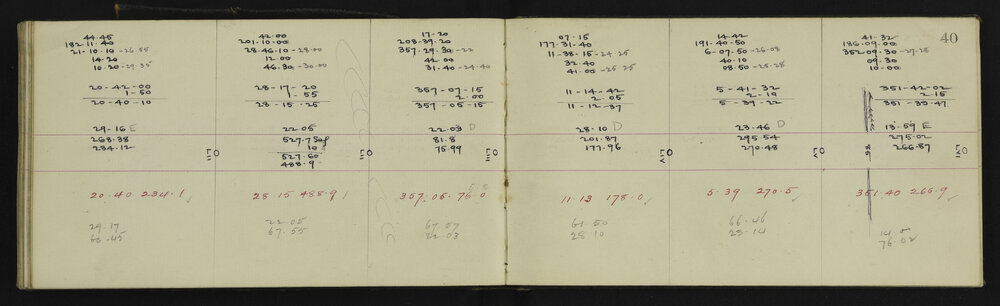 40
44.45
182.11.40
21.10.10-26.55
14.20
10.20-29.35
20-42-00
1-50
20-40-10
29-16 E
268.38
234.12
20.40 234.1
29.17
60.45
42.00
201.10.00
28.46.10-28.00
12.00
46.30-30.00
28-17-20
1-55
28-15-25
22.05
527.7
10
527.60
488.9
28.15 488.9
22.05
67.55
17-20
208-39.20
357.29.30-22
42.00
31.40-24.40
357-07-15
2.00
357-05-15
22.03 D
81.8
75.99
357.05.76.0
67.57
22.03
07.15
177.31.40
11-38-15-24.25
32.40
41.00-25.25
11-14-42
2.05
11-12-37
28.10 D
201.87
177.96
11.13 178.0
61.50
28 10
14.42
191-40-50
6-07.50-26.08
40.10
08.50-25.28
5-41-32
2-19
5-39-22
23.46 D
295.54
270.48
5.39 270.5
66.46
23.14
41.32
186.09.00
352.09.30-27.28
09.30
10-00
351-42-02
2.15
351-39.47
13.59 E
275.02
266.87
351.40 266.9
76.02